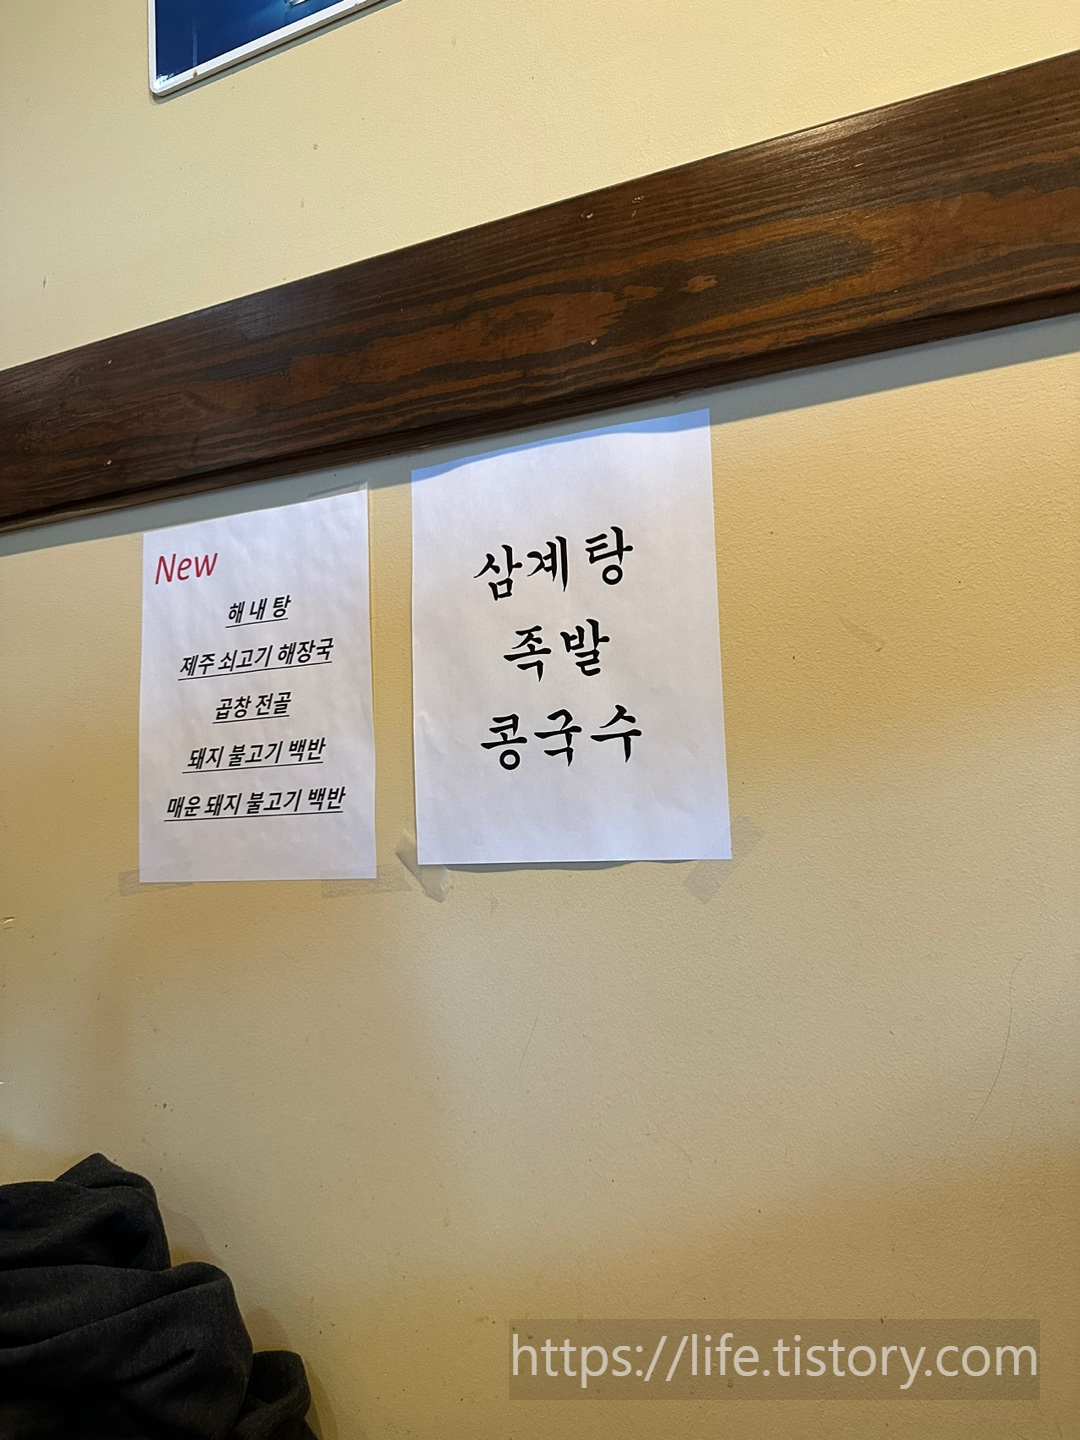 New
해 내 탕
제주 쇠고기 해장국
곱창 전골
돼지 불고기 백반
매운 돼지 불고기 백반
삼계탕
족발
콩국수
https://life.tistory.com